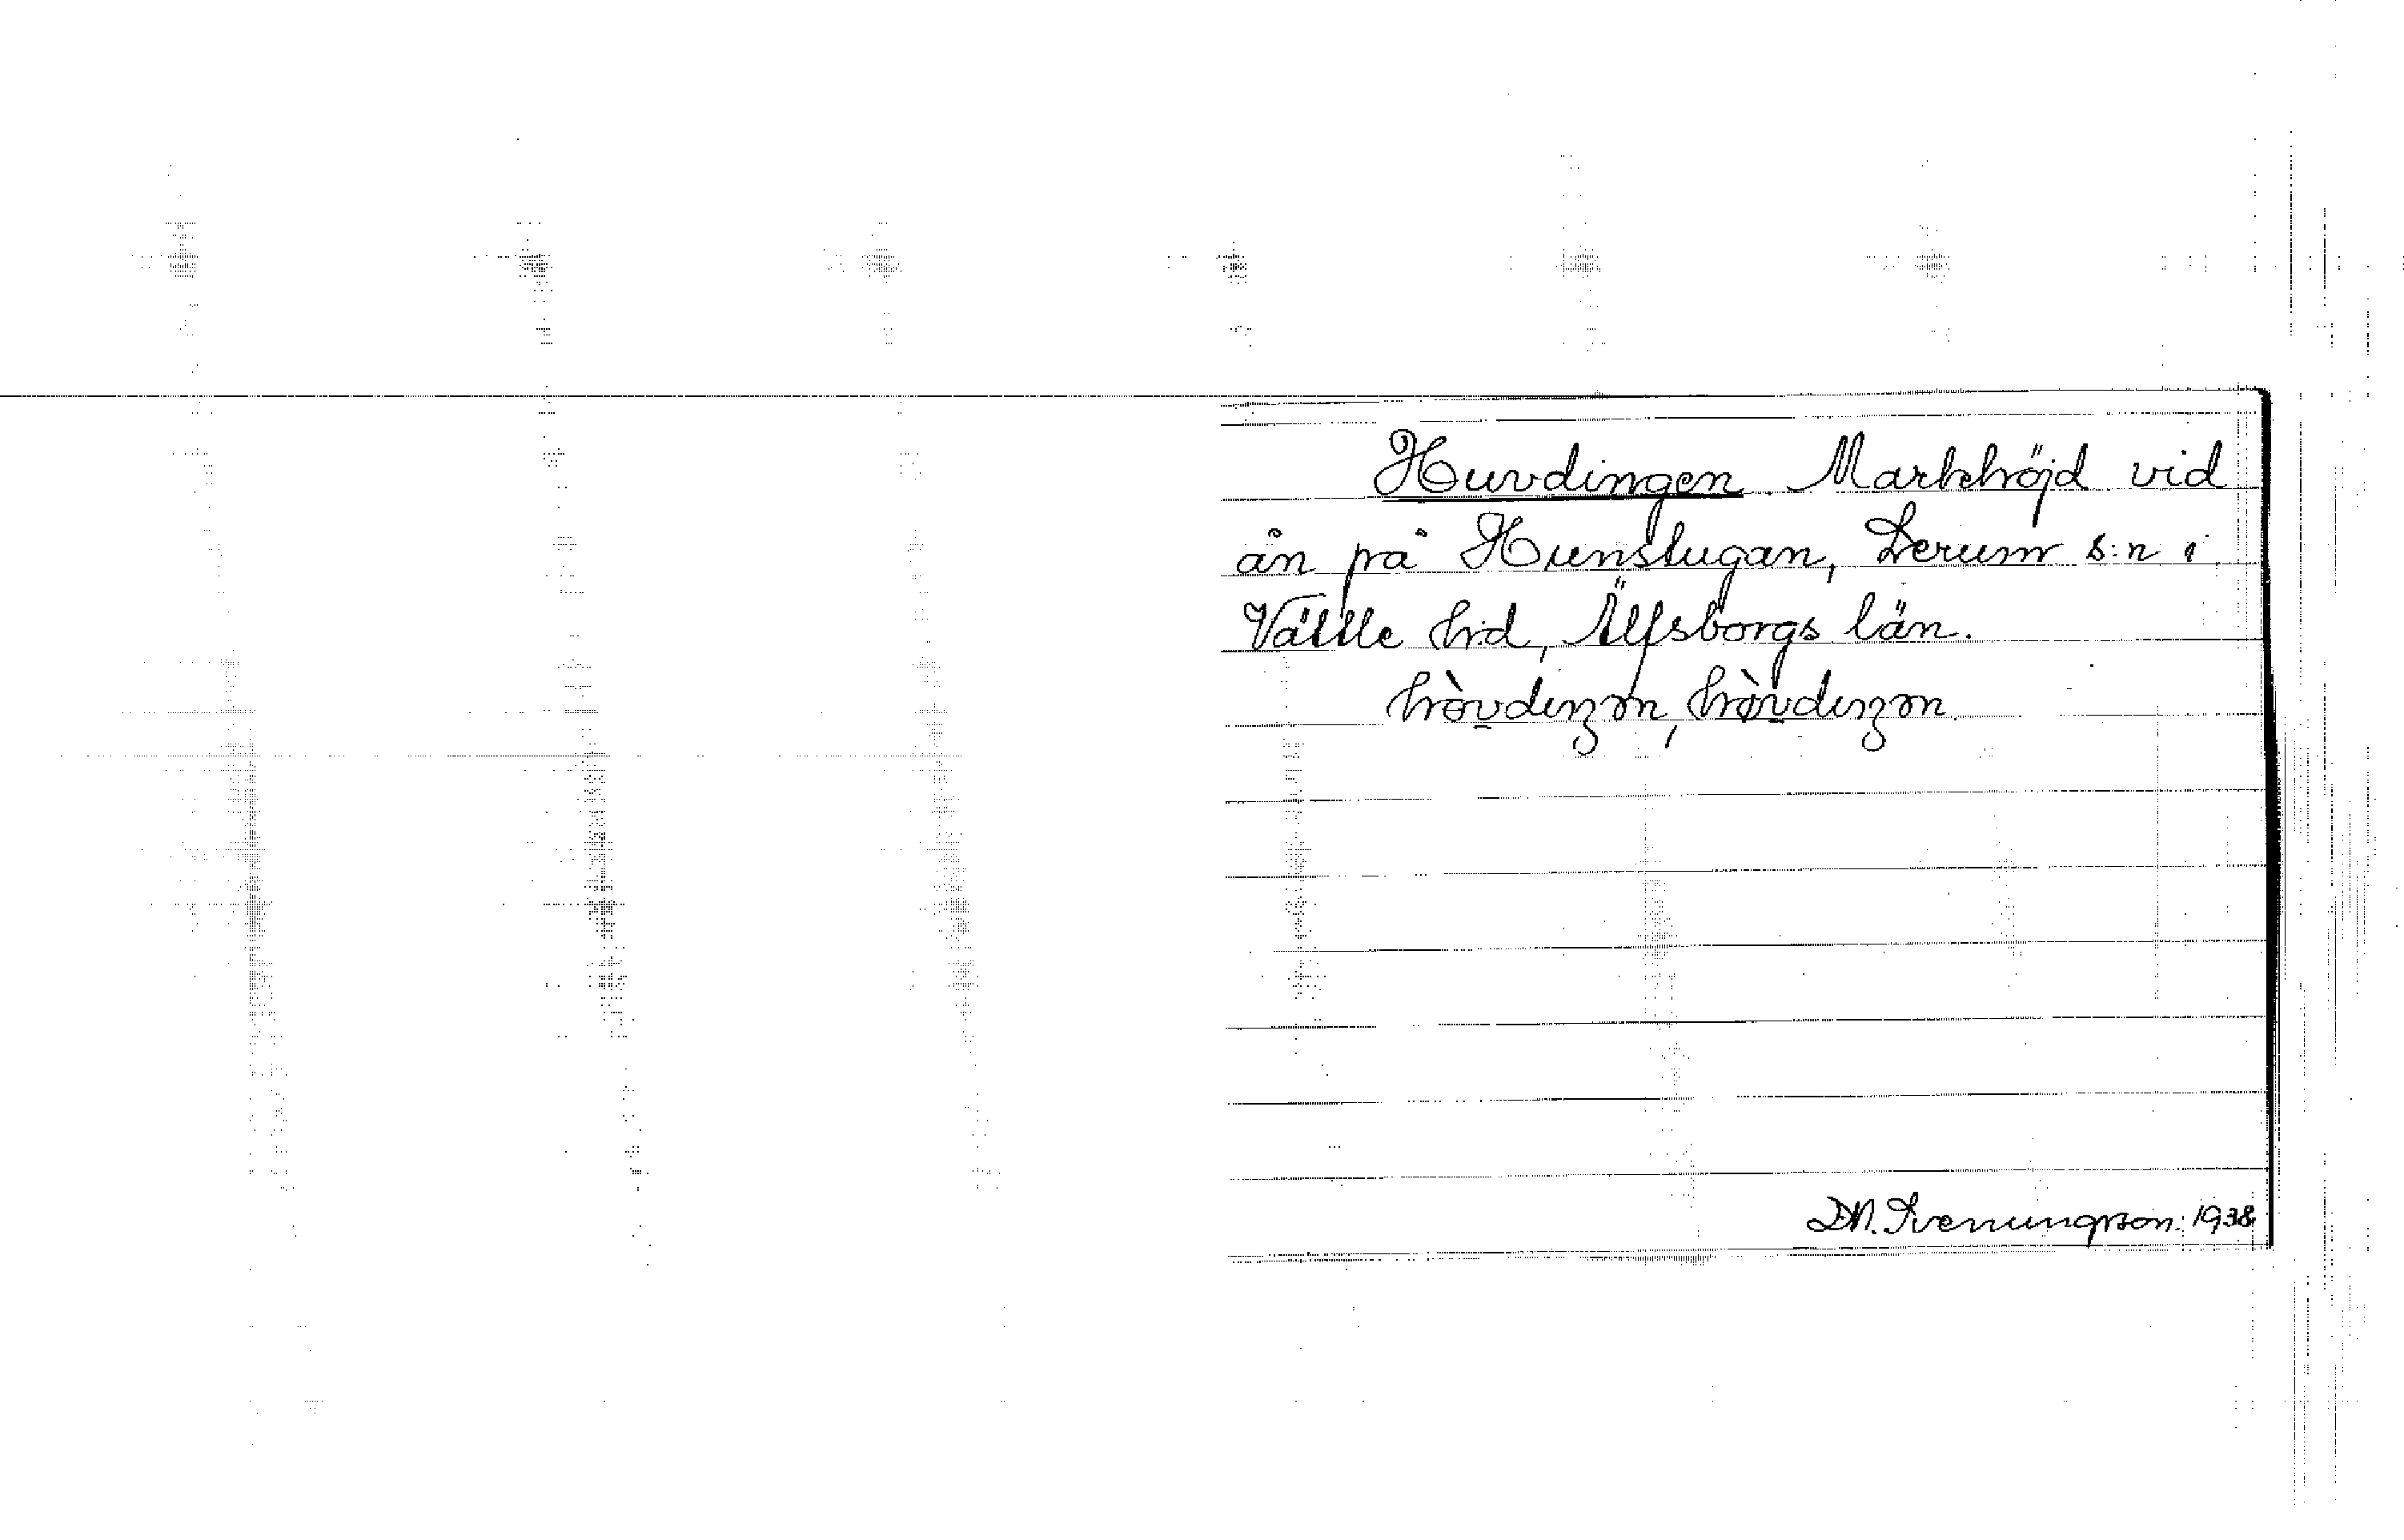 Huvdingen. Markhöjd vid
ån på Hunstugan, Lerum s:n i
Vättle hd, Älfsborgs län.
D.N. Svenungsson. 1938